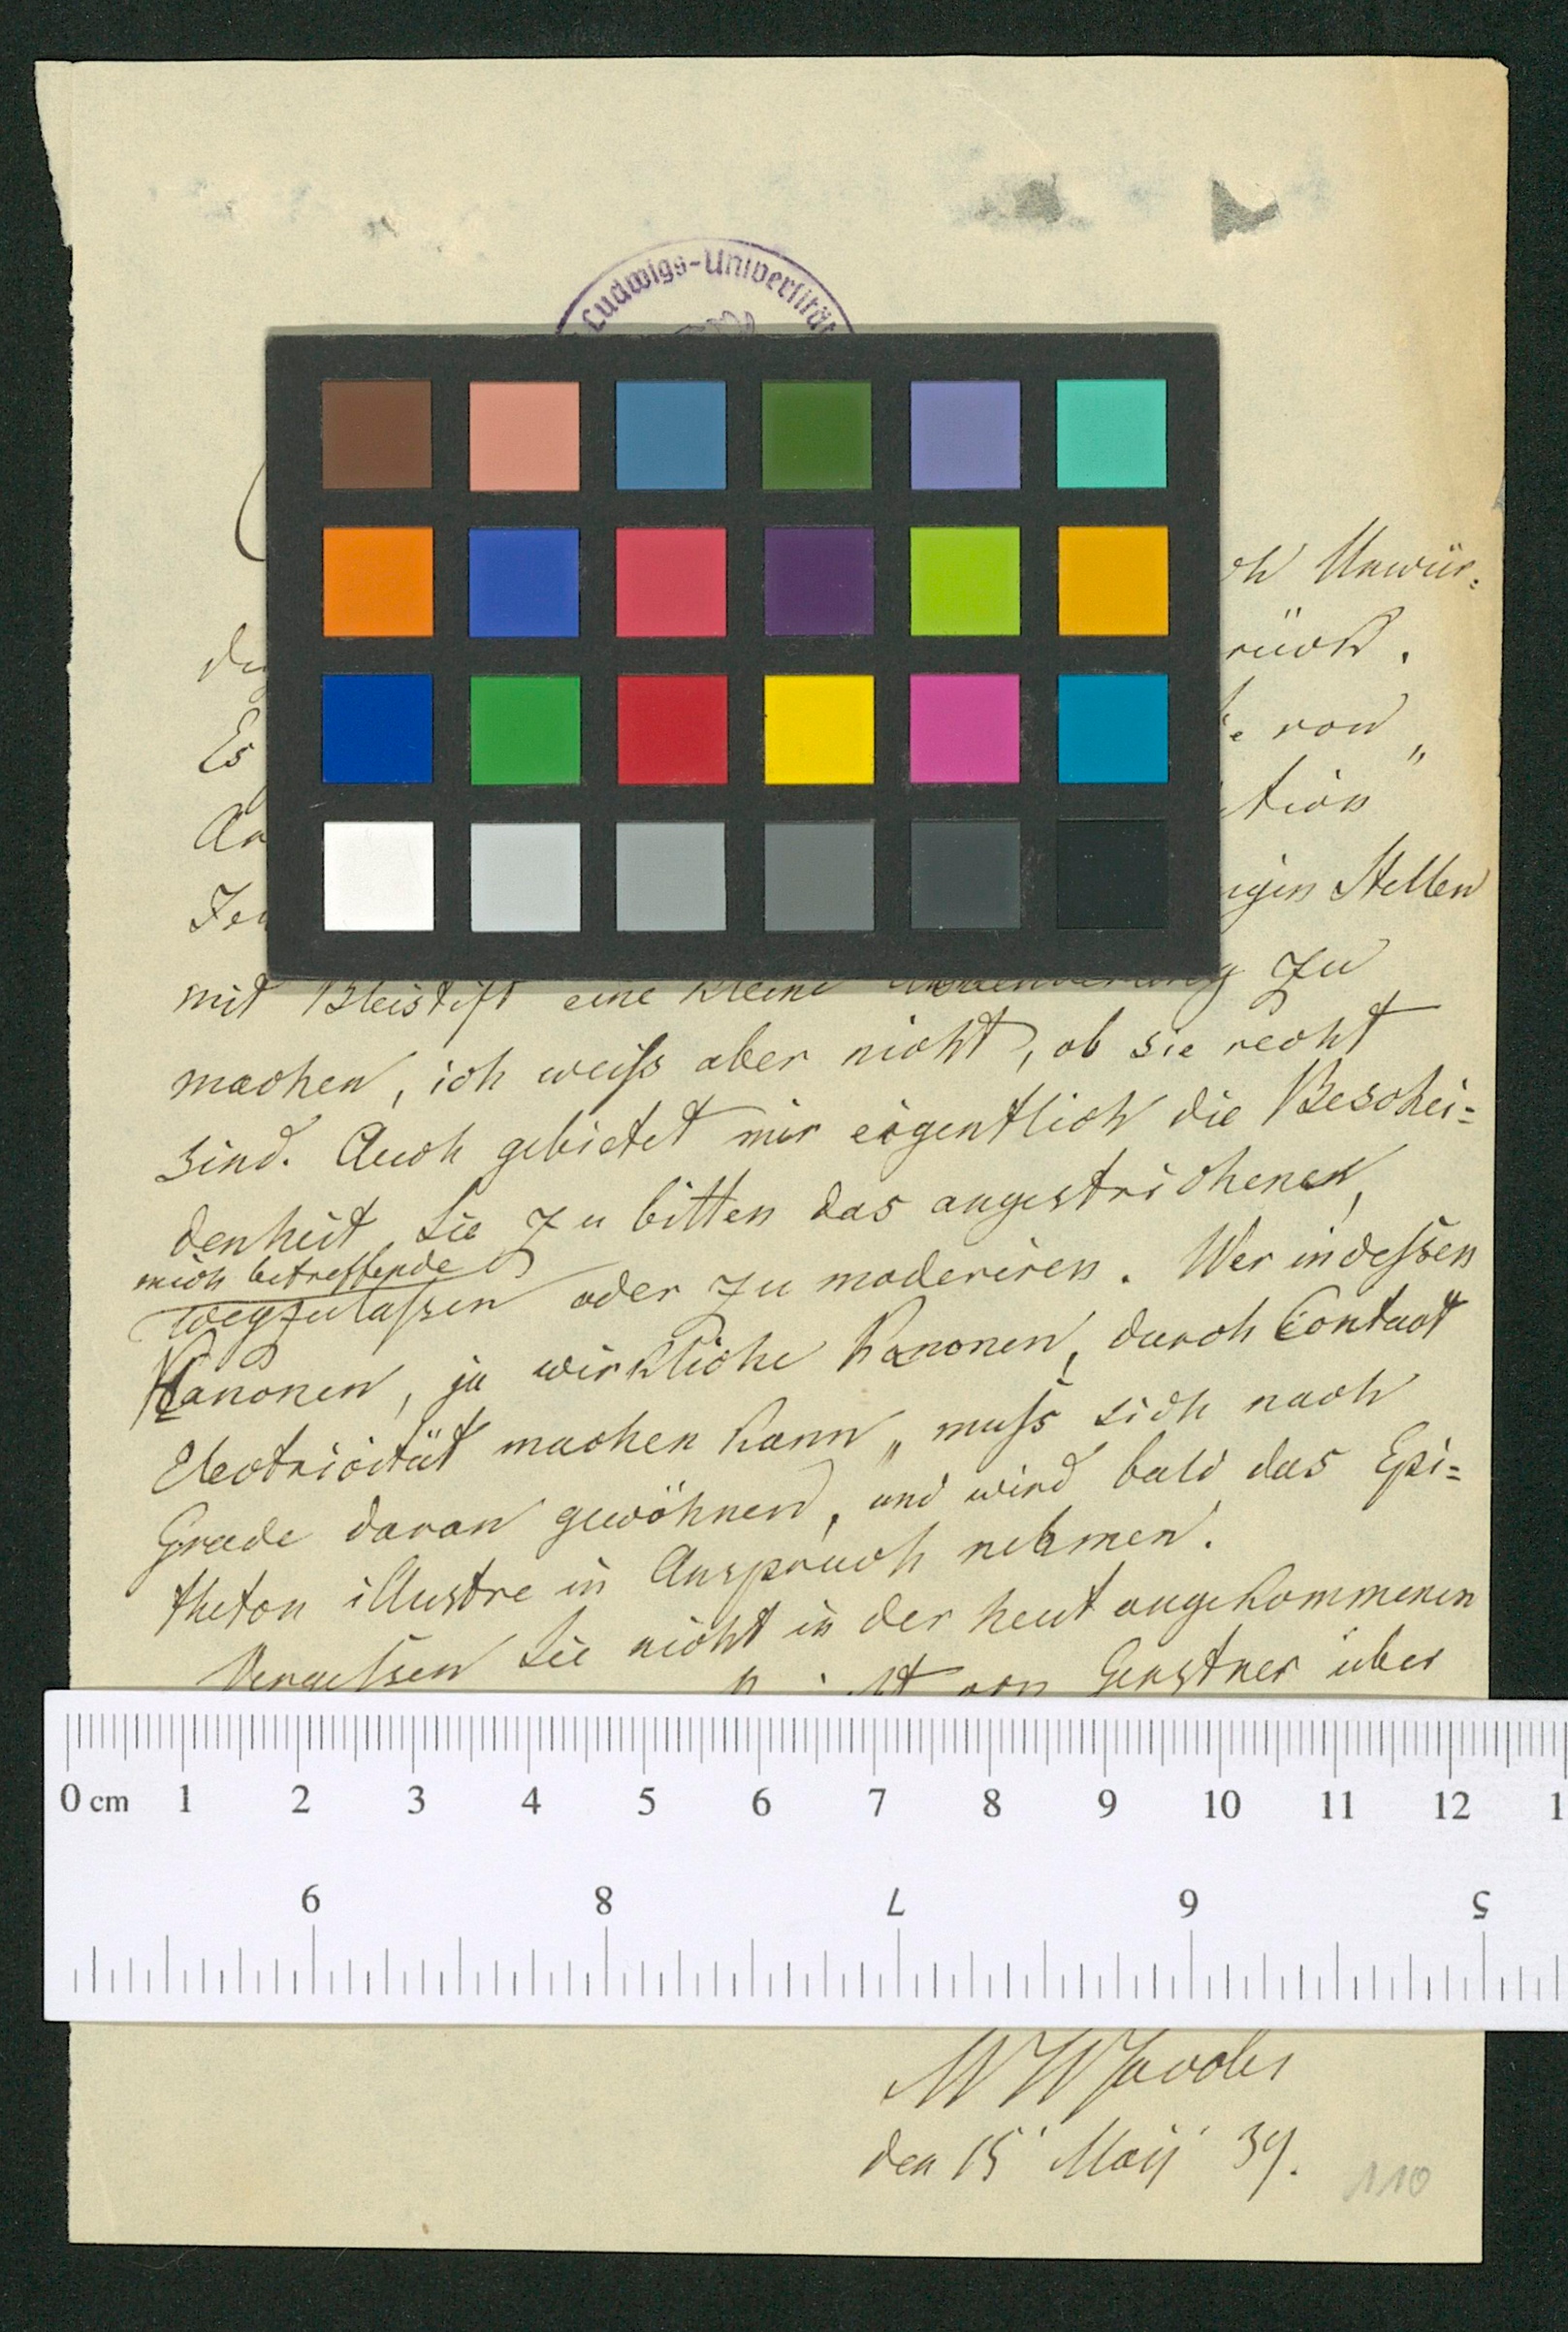 Ludwigs-Universität
Unwür-
rück.
Es von „
tion"
igen Stellen
mit Bleistift eine kleine zu
machen, ich weiss aber nicht, ob sie recht
sind. Auch gebietet mir eigentlich die Beschei=
denheit Sie zu bitten das angestrichenen,
mich betreffende
wegzulassen oder zu moderiren. Wer indessen
Kanonen, ja wirkliche Kanonen, durch Contact
Electricität machen kann, muss sich nach
Grade daran gewöhnen, und wird bald das Epi=
theton illustre in Anspruch nehmen.
Vergessen Sie nicht in der heut angekommenen
von Gerstner über
0 cm 1 2 3 4 5 6 7 8 9 10 11 12 1
9 8 7 6 5
MHJacobi
den 15 Maij 39.
110